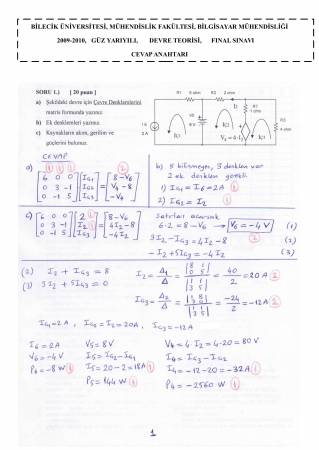 BİLECİK ÜNİVERSİTESİ, MÜHENDİSLİK FAKÜLTESİ, BİLGİSAYAR MÜHENDİSLİĞİ
2009-2010, GÜZ YARIYILI, DEVRE TEORİSİ, FINAL SINAVI
CEVAP ANAHTARI
SORU 1.) [ 20 puan ]
a) Şekildeki devre için Çevre Denklemlerini
matris formunda yazınız.
b) Ek denklemleri yazınız.
c) Kaynakların akım, gerilim ve
güçlerini bulunuz.
R1 6 ohm R2 2 ohm
I2
R3
4 ohm
CEVAP
a) (1) (1) (1) (2)
[6 0 0] [IG1] [8-V6]
[0 3 -1] [IG2] = [V4-8]
[0 -1 5] [IG3] [-V4]
b) 5 bilinmeyen, 3 denklem var
2 ek denklem gerekli.
1) IG1 = I6 = 2A (1)
2) IG2 = I2 (1)
c) [6 0 0] [2] [8-V6]
[0 3 -1] [I2] = [4I2-8] (2)
[0 -1 5] [IG3] [-4I2]
Satırları açarsak
6·2 = 8-V6 → V6 = -4V (1)
3I2 - IG3 = 4I2 - 8 (2)
-I2 + 5IG3 = -4I2 (3)
(2) I2 + IG3 = 8
(3) 3I2 + 5IG3 = 0
I2 = Δ1/Δ = |8 1| |0 5| / |1 1| |3 5| = 40/2 = 20A (2)
IG3 = Δ2/Δ = |1 8| |3 0| / |1 1| |3 5| = -24/2 = -12A (2)
IG1 = 2A , IG2 = I2 = 20A , IG3 = -12A
I6 = 2A V5 = 8V V4 = 4·I2 = 4·20 = 80V
V6 = -4V I5 = IG2-IG1 I4 = IG3-IG2
P6 = -8W (1) I5 = 20-2 = 18A (1) I4 = -12-20 = -32A (1)
P5 = 144W (1) P4 = -2560W (1)
1